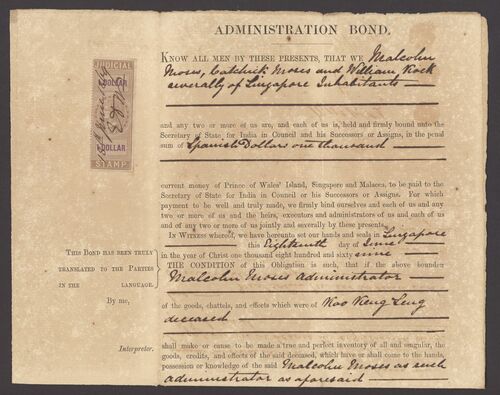 ADMINISTRATION BOND.
KNOW ALL MEN BY THESE PRESENTS, THAT WE Malcolm
Moses, Catchick Moses and William Rock
severally of Singapore Inhabitants
and any two or more of us are, and each of us is, held and firmly bound unto the
Secretary of State for India in Council and his Successors or Assigns, in the penal
sum of Spanish Dollars one thousand
current money of Prince of Wales' Island, Singapore and Malacca, to be paid to the
Secretary of State for India in Council or his Successors or Assigns. For which
payment to be well and truly made, we firmly bind ourselves and each of us and any
two or more of us and the heirs, executors and administrators of us and each of us
and of any two or more of us jointly and severally by these presents.
IN WITNESS whereof, we have hereunto set our hands and seals in Singapore
this Eighteenth day of June
in the year of Christ one thousand eight hundred and sixty nine
THE CONDITION of this Obligation is such, that if the above bounden
Malcolm Moses administrator
of the goods, chattels, and effects which were of Koo Keng Leng
deceased
shall make or cause to be made a true and perfect inventory of all and singular, the
goods, credits, and effects of the said deceased, which have or shall come to the hands,
possession or knowledge of the said Malcolm Moses as such
administrator as aforesaid
JUDICIAL
1 DOLLAR
1 DOLLAR
STAMP
THIS BOND HAS BEEN TRULY
TRANSLATED TO THE PARTIES
IN THE LANGUAGE.
By me,
Interpreter.